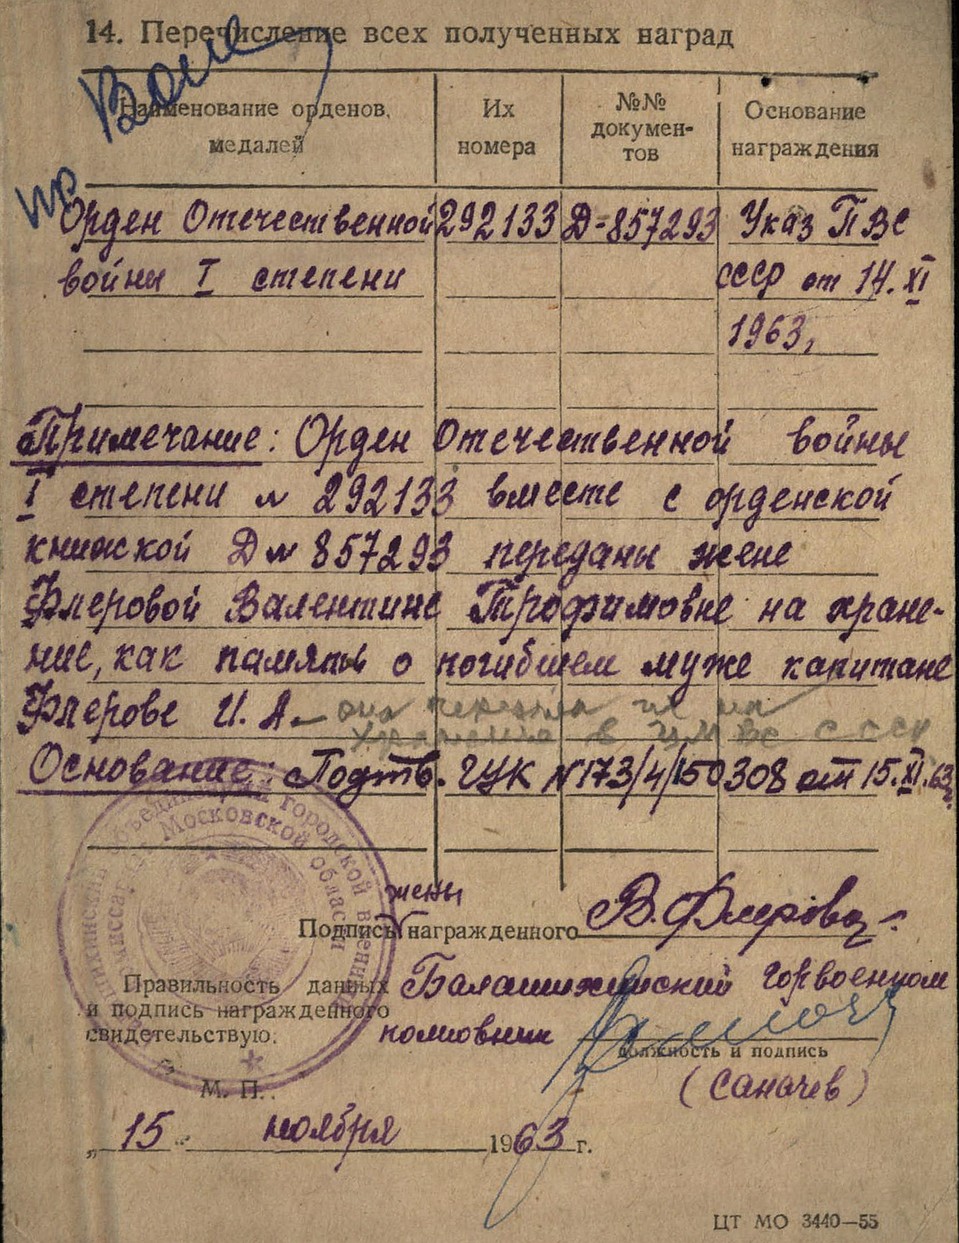 14. Перечисление всех полученных наград
Наименование орденов, медалей
Их номера
№№ докумен-
тов
Основание награждения
Орден Отечественной 292133 Д-857293 Указ ПВС
войны I степени СССР от 14.XI
1963,
Примечание: Орден Отечественной войны
I степени № 292133 вместе с орденской
книжкой Д № 857293 переданы жене
Флеровой Валентине Трофимовне на хране-
ние, как память о погибшем муже капитане
Флерове И. А. – она передала их на
хранение в ЦМ ВС СССР
Основание: Подтв. ГУК №173/4/150308 от 15.XI.63г.
жены
Подпись награжденного В. Флерова
Правильность данных Балашихинский горвоенком
и подпись награжденного
свидетельствую: полковник
должность и подпись
М. П. (Саначев)
„15" ноября 1963 г.
городской военный
Московской области
ЦТ МО 3440—55